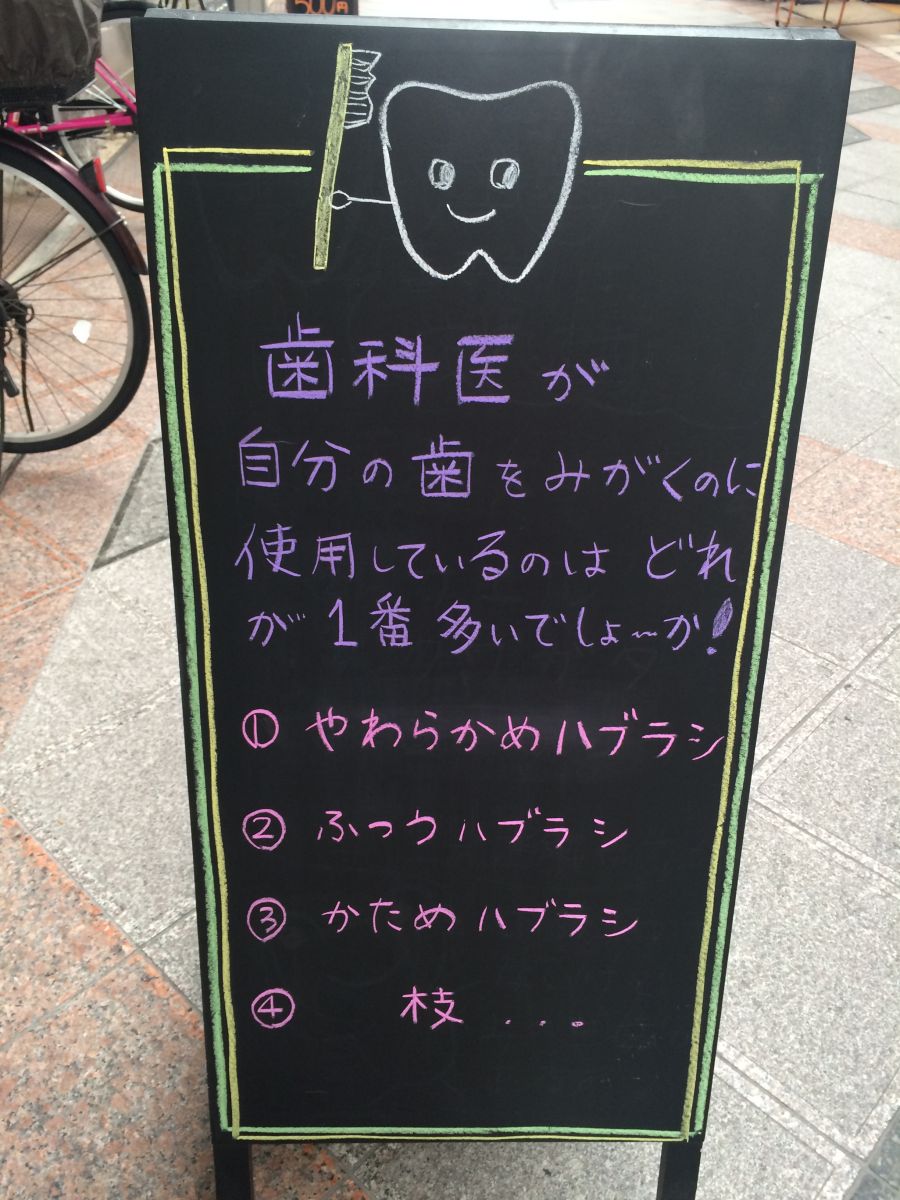 500円
歯科医が
自分の歯をみがくのに
使用しているのは どれ
が 1番 多いでしょ〜か!
① やわらかめハブラシ
② ふつうハブラシ
③ かためハブラシ
④ 枝 ...。